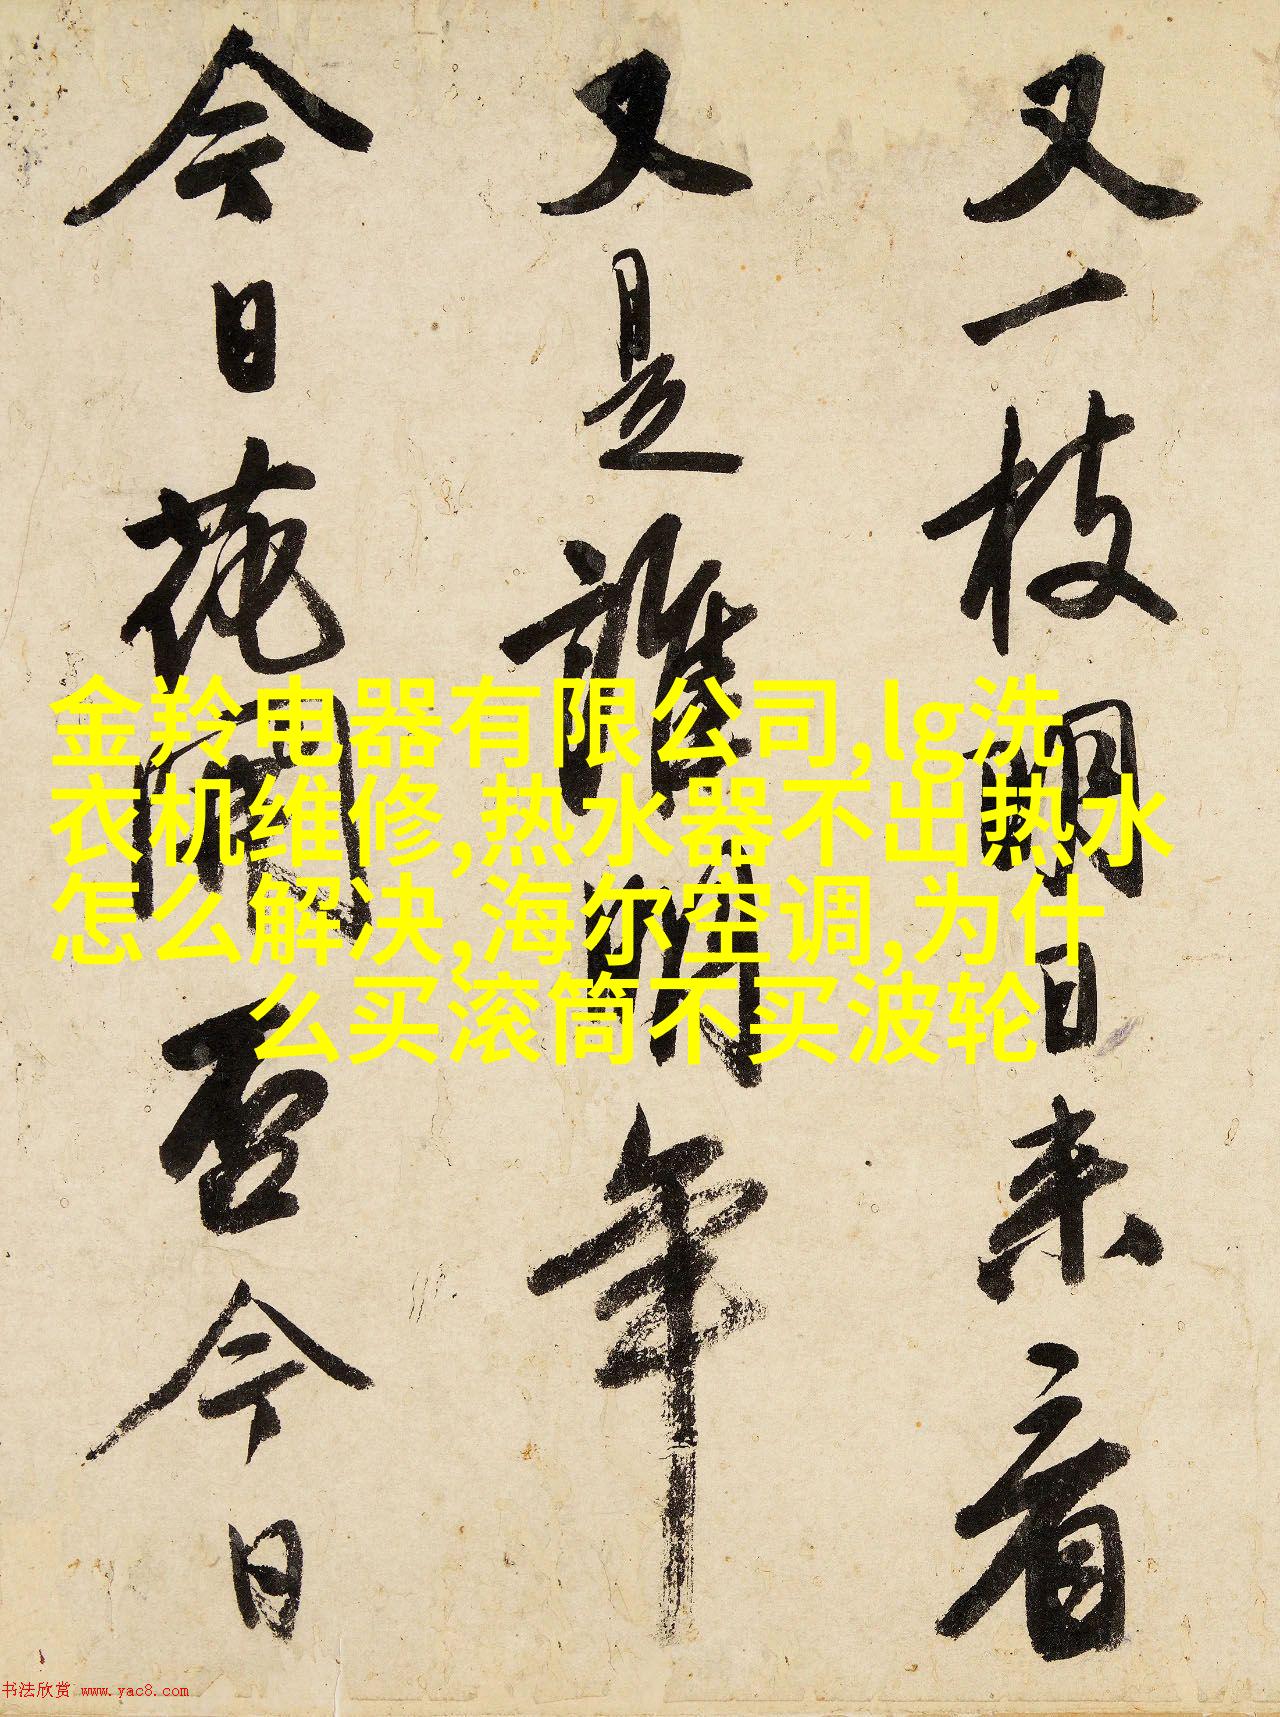 又一枝明日来看
又是誰明年
今日花開否今日
金羚电器有限公司,lg洗
衣机维修,热水器不出热水
怎么解决,海尔空调,为什
么买滚筒不买波轮
书法欣赏 www.yac8.com